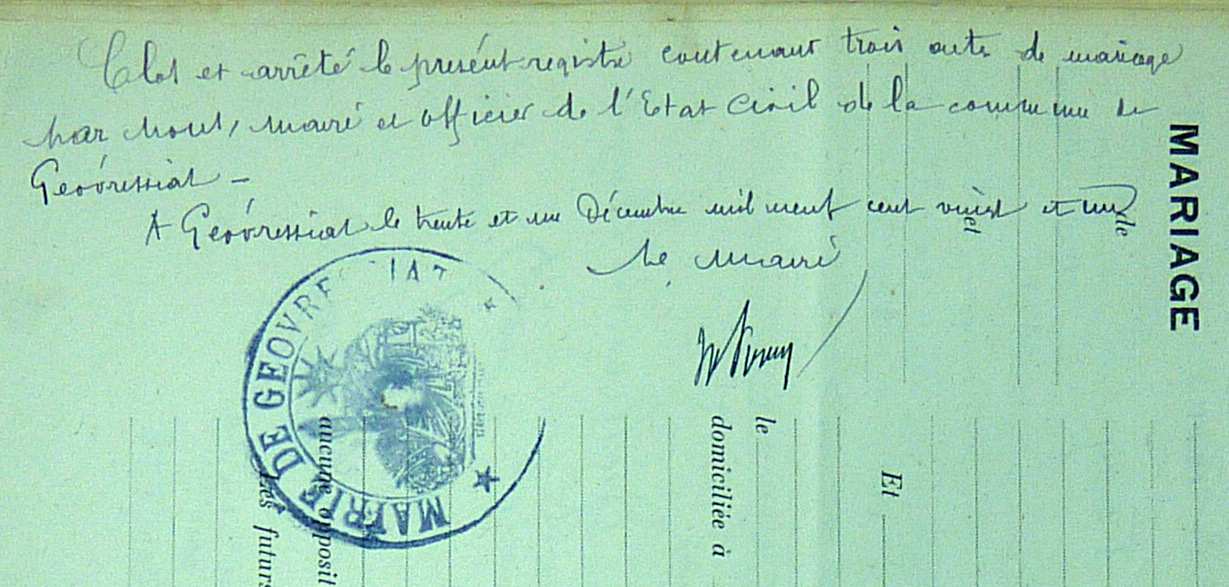 Clos et arrêté le présent registre contenant trois actes de mariage
par nous, maire et officier de l'Etat Civil de la commune de
Géovressiat -
A Géovressiat le trente et un Décembre mil neuf cent vingt et un
Le Maire
MAIRIE DE GEOVRE IAT
MARIAGE
et
le
le
domiciliée à
Et
aucune opposit
Les futurs